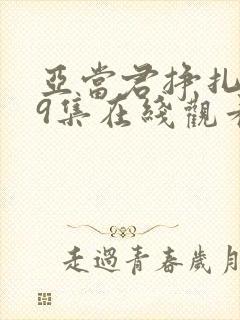 亞當君掙扎
9集在綫觀看
走過青春歲月